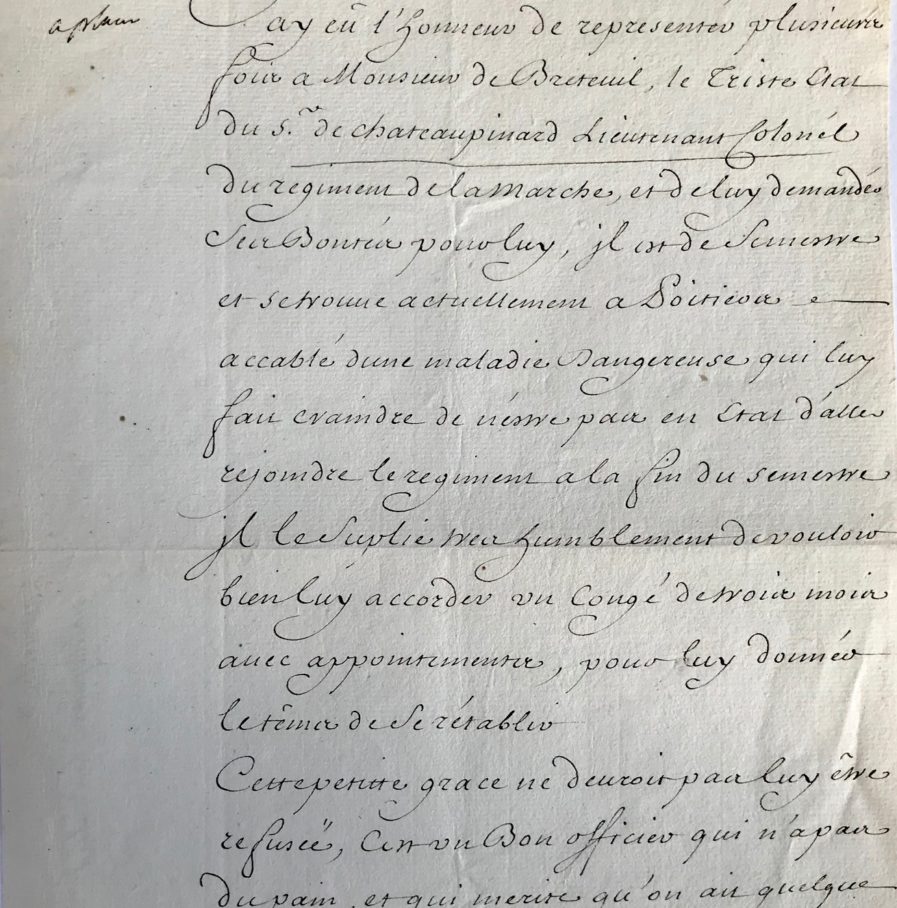 ay eû l'honneur de representer plusieurs
fois a Monsieur de Breteuil, le Triste Etat
du s.r de chateaupinard Lieutenant Colonél
du regiment de la Marche, et de luy demandér
Ses Bontés pour luy, jl est de Semestre
et se trouve actuellement a Poitiers
accablé dune maladie Dangereuse qui luy
fait craindre de n'éstre pas en Etat d'aller
rejoindre le regiment a la fin du semestre
jl le Suplie tres humblement de vouloir
bien lúy accorder un Congé de trois mois
avec appointements, pour luy donnér
le téms de Se rétablir
Cette petitte grace ne devroit pas luy être
refuseë, C'est un Bon officier qui n'a pas
du pain, et qui merite qu'on ait quelque